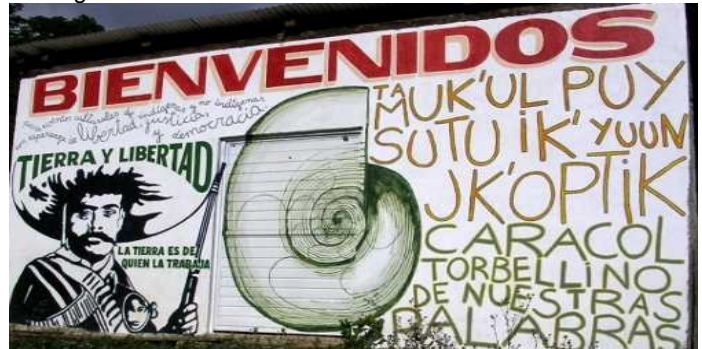 BIENVENIDOS
culturales de indígenas y no indígenas
con esperanza de libertad, justicia,
y democracia.
TIERRA Y LIBERTAD
LA TIERRA ES DE
QUIEN LA TRABAJA
TA
MUK'UL PUY
SUTU IK' YUUN
JK'OPTIK
CARACOL
TORBELLINO
DE NUESTRAS
PALABRAS